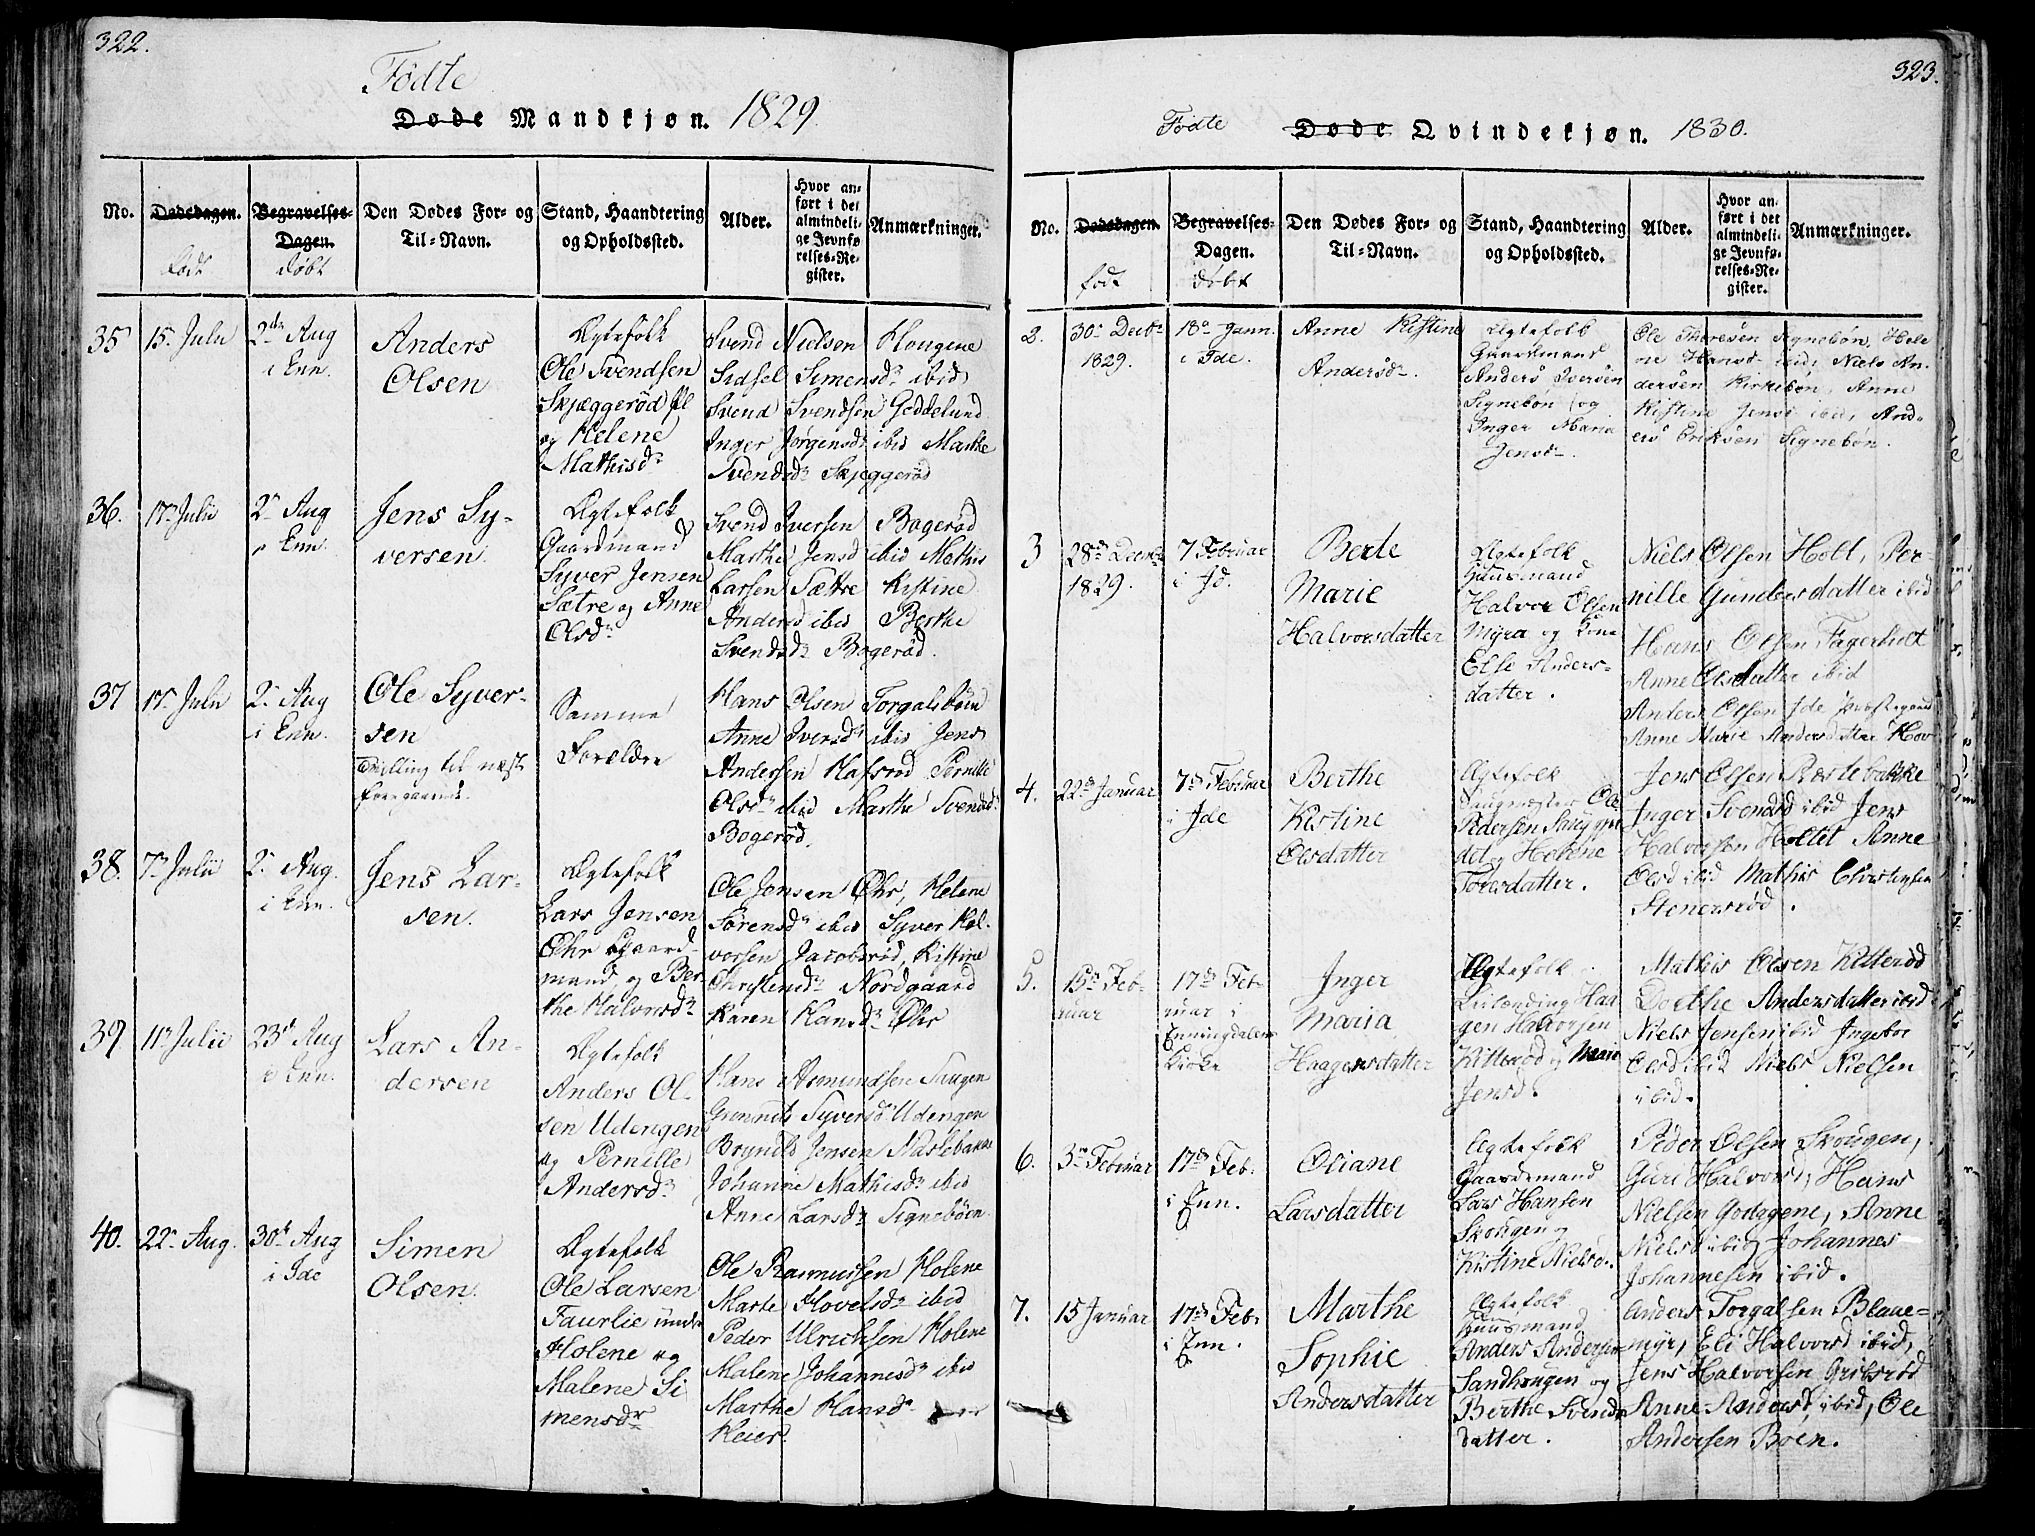 322.
Födte
Døde Mandkjøn. 1829
No.
Dødsdagen.
født
Begravelses-
Dagen.
döbt
Den Dødes For- og
Til-Navn.
Stand, Haandtering
og Opholdssted.
Alder.
Hvor an-
ført i det
almindeli-
ge Jevnfø-
relses-Re-
gister.
Anmærkninger.
35
15. Julii
2de Aug
i Enn.
Anders
Olsen
Ægtefolk
Ole Svendsen
Skjæggerød
og Helene
Mathisdr
Svend Nielsen Hougene
Sidsel Simensdr ibid
Svend Svendsen Geddelund
Inger Jørgensdr ibid Marthe
Svendsdr Skjeggerød
36.
17 Julii
2 Aug
i Enn
Jens Sy-
versen.
Ægtefolk
Gaardmand
Syver Jensen
Sætre og Anne
Olsdr
Svend Iversen Bogerød
Marthe Jensd ibid Mathis
Larsen Sættre Kistine
Andersd ibid Berthe
Svendsdr Bogerød.
37
17 Julii
2 Aug
i Enn.
Ole Syver-
sen
Tvilling til næst
foregaaende.
Samme
Forældre
Hans Olsen Torgalsbøen
Anne Iversdr ibid Jens
Andersen Hafsrød Pernille
Olsdr ibid Marthe Svendsdr
Bogerød.
38.
7 Julii
2 Aug.
i Enn.
Jens Lar-
sen.
Ægtefolk
Lars Jensen
Øhr Gaard-
mand, og Ber-
the Halvorsdr
Ole Jensen Øhr, Helene
Sørensdr ibid Syver Hal-
vorsen Jacobsrød, Kistine
Christensdr Nordgaard
Karen Hansdr Øhr
39.
11 Julii
23de Aug
i Enn.
Lars An-
dersen
Ægtefolk
Anders Ol-
sen Udengen
og Pernille
Andersdr
Hans Asmundsen Saugen
Gunnild Syversdr Udengen
Brynild Jensen Næstebakke
Johanne Mathisdr ibid
Anne Larsdr Signebøen
40.
22 Aug.
30te Aug
i Ide
Simen
Olsen.
Ægtefolk
Ole Larsen
Faurlie under
Holene og
Malene Si
mensdr
Ole Rasmussen Holene
Marte Hovelsdr ibid
Peder Ulrichsen Holene
Malene Johannesdr ibid
Marthe Hansdr
Heier.
323.
Födte Døde Qvindekjøn. 1830.
No.
Dødsdagen.
født
Begravelses-
Dagen.
döbt
Den Dødes For- og
Til-Navn.
Stand, Haandtering
og Opholdssted.
Alder.
Hvor an-
ført i det
almindeli-
ge Jevnfø-
relses-Re-
gister.
Anmærkninger.
2.
30 Decbr
1829.
18 Jann.
i Ide.
Anne Kistine
Andersdr.
Ægtefolk
Gaardmand
Anders Iversen
Signebøn og
Inger Maria
Jensdr.
Ole Theresen Signebøn, Hele
ne Hansd ibid, Niels An-
dersen Kirkebøn, Anne
Kistine Jensd ibid, And-
ers Eriksen Signebøn.
3
28de Decbr
1829.
7 Februar
i Id.
Berte
Marie
Halvorsdatter
Ægtefolk
Huusmand
Halvor Olsen
Myra og Kone
Else Anders-
datter.
Niels Olsen Holt, Per-
nille Gundersdatter ibid
Hans Olsen Fagerholt
Anne Olsdatter ibid
Anders Olsen Ide Præstegaard
Anne Marie Andersdatter Hov
4.
22de Januar
7de Februar
i Ide
Berthe
Kistine
Olsdatter
Ægtefolk
Saugmester Ole
Pedersen
Helene
Toresdatter.
Jens Olsen Næstebakke
Inger Svendsd ibid Jens
Halvorsen Holtet Anne
Olsd ibid Mathis Christensen
Stenersrød.
5.
15de Feb-
ruar
17de Feb-
ruar i
Enningdalens
Kirke
Inger
Maria
Haagensdatter
Ægtefolk
Haa
gen Halvorsen
Kitterød og Marie
Jensd.
Mathis Olsen Kitterød
Dorthe Andersdatter ibid
Niels Jensen ibid Ingebor
Olsd ibid Niels Nielsen
ibid.
6.
3 Februar
17de Feb.
i Enn.
Oliane
Larsdatter
Ægtefolk
Gaardemand
Lars Hansen
Skougen og
Kistine Nielsd.
Peder Olsen Skougen,
Guri Halvorsd, Hans
Nielsen Goddgene, Anne
Nielsd ibid, Johannes
Johannesen ibid.
7.
15 Januar
17de Feb.
i Enn.
Marthe
Sophie
Andersdatter
Ægtefolk
Huusmand
Anders Andersen
Sandhougen og
Berthe Svends
datter.
Anders Torgalsen Blaue-
myr, Eli Halvorsd ibid,
Jens Halvorsen Gribsrød
Anne Andersd, ibid, Ole
Andersen Boen.